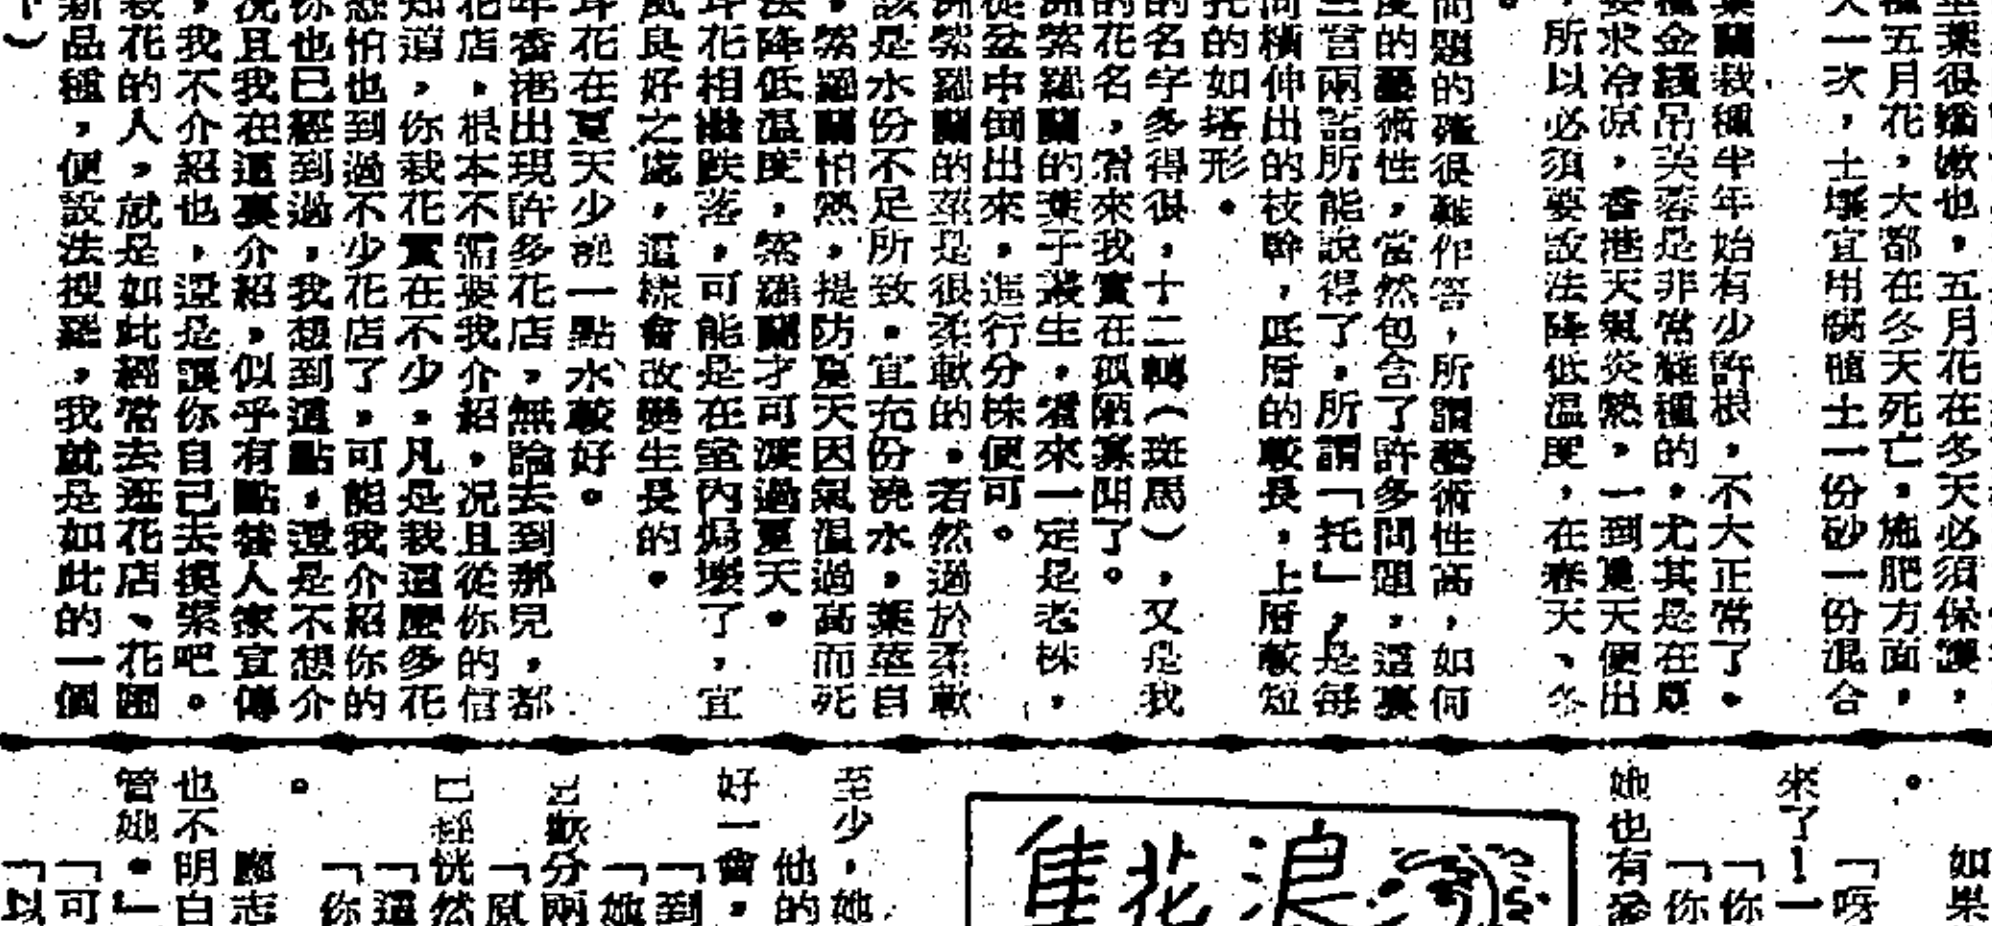 莖葉很嬌嫩也，五月花在冬天必須保護，
種五月花，大都在冬天死亡。施肥方面，
天一次，土壤宜用腐植土一份砂一份混合
葉蘭栽種半年始有少許根，不大正常了。
種金錢吊芙蓉是非常難種的，尤其是在夏
要求冷凉，香港天氣炎熱，一到夏天便出
，所以必須要設法降低溫度，在春天、冬
。
問題的確很難作答，所謂藝術性高，如何
度的藝術性，當然包含了許多問題，這裏
三言兩語所能說得了。所謂「托」，是每
向橫伸出的枝幹，底層的較長，上層較短
托的如塔形。
的名字多得很，十二轉（斑馬），又是我
的花名，看來我實在孤陋寡聞了。
洲紫羅蘭的葉子叢生，看來一定是老株，
從盆中倒出來，進行分株便可。
洲紫羅蘭的莖是很柔軟的。若然過於柔軟
該是水份不足所致。宜充份澆水，葉莖自
，紫羅蘭怕熱，提防夏天因氣溫過高而死
法降低溫度，紫羅蘭才可渡過夏天。
耳花相繼跌落，可能是在室內焗壞了，宜
風良好之處，這樣會改變生長的。
耳花在夏天少澆一點水較好。
年香港出現許多花店，無論去到那兒，都
花店，根本不需要我介紹。况且從你的信
知道，你栽花實在不少。凡是栽這麼多花
恐怕也到過不少花店了，可能我介紹你的
你也已經到過，我想到這點，還是不想介
况且我在這裏介紹，似乎有點替人家宣傳
，我不介紹也，還是讓你自己去摸索吧。
栽花的人，就是如此經常去逛花店、花圃
新品種，便設法搜羅，我就是如此的一個
下）
如果
。
「呀
來了！一
「你
「你
她也有
浪花集
至少，她
他的
好一會，
「到
「她
分兩
「原
已經恍然
「這
「你
。
志
也不明白
管她。」
「可
「以